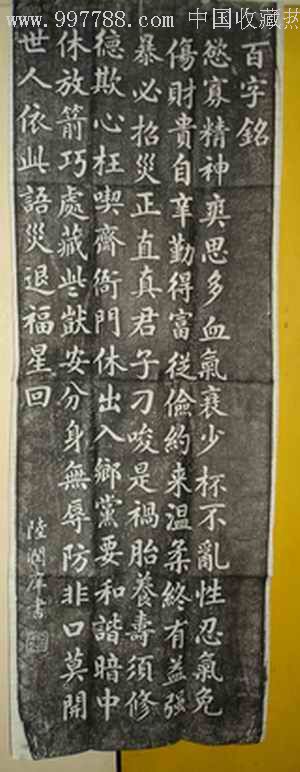 www.997788.com 中国收藏热
百字銘
慾寡精神爽思多血氣衰少杯不亂性忍氣免
傷財貴自辛勤得富從儉約来溫柔終有益强
暴必招災正直真君子刁唆是禍胎養壽須修
德欺心枉喫齋衙門休出入鄉黨要和諧暗中
休放箭巧處藏些獃安分身無辱防非口莫開
世人依此語災退福星回
陸潤庠書